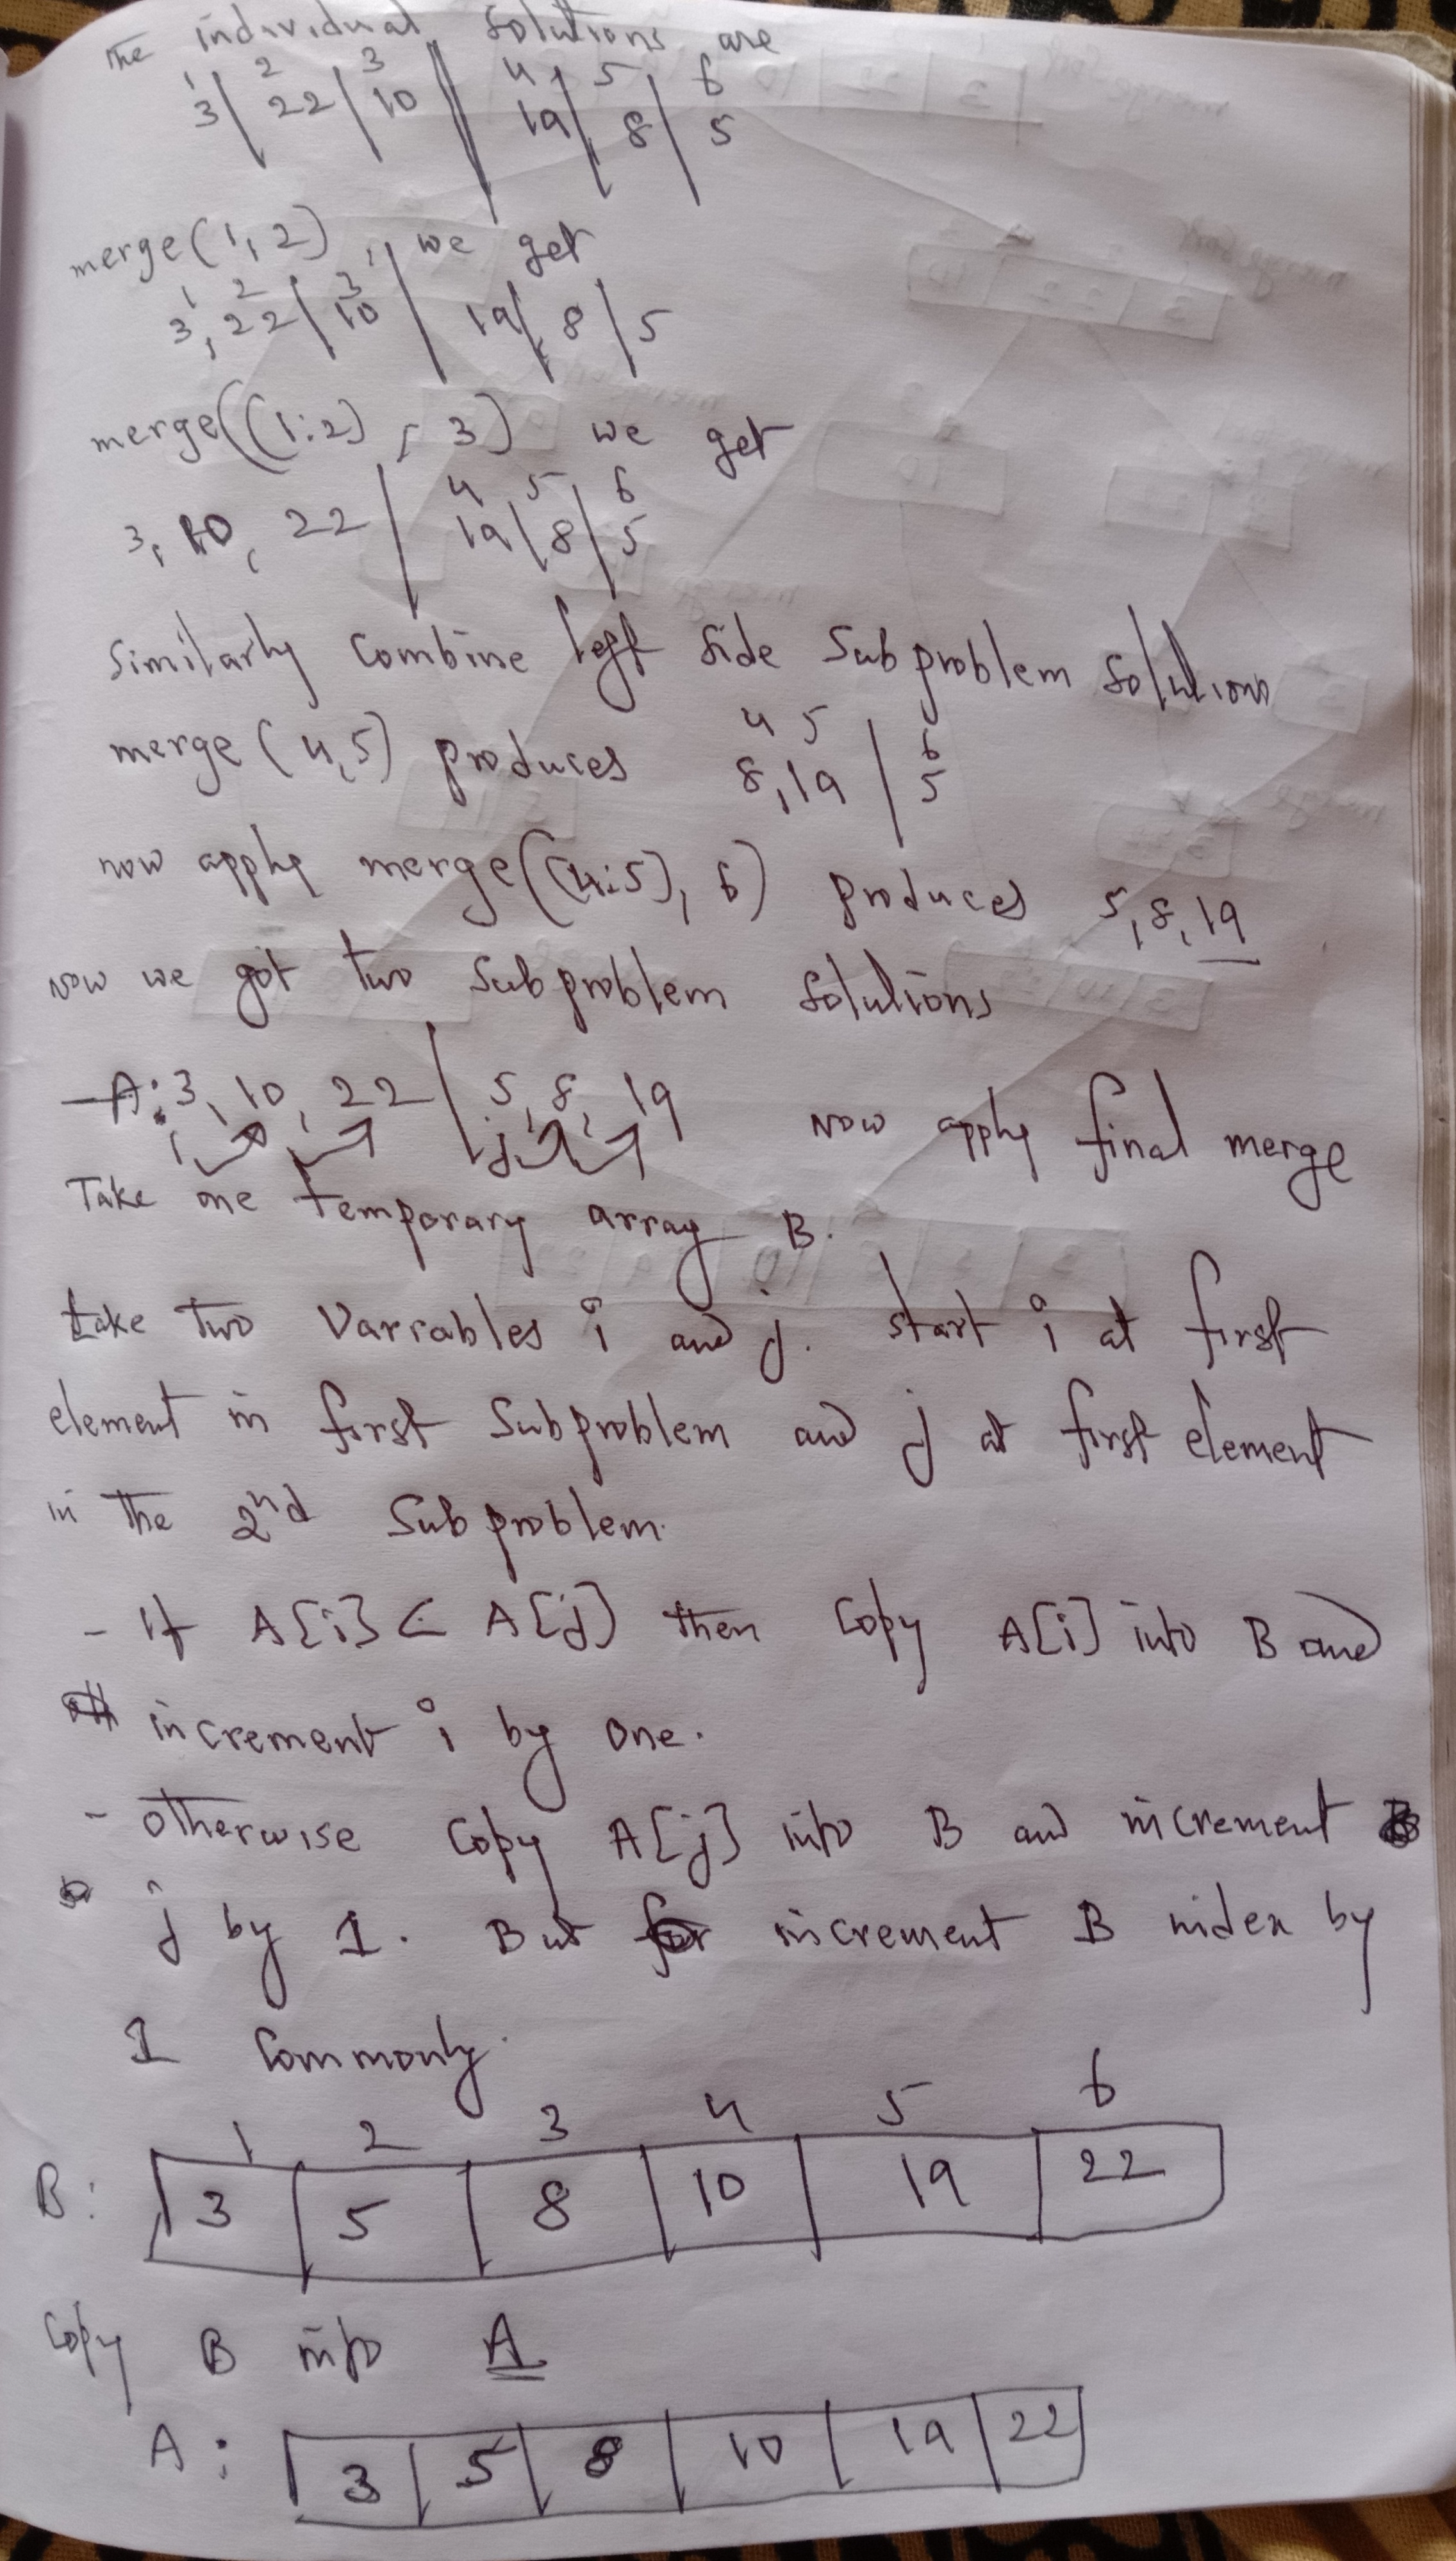 The individual solutions are
1 2 3 4 5 6
3 | 22 | 10 | 19 | 8 | 5
merge(1,2), we get
1 2 3
3, 22 | 10 | 19 | 8 | 5
merge((1:2), 3) we get
4 5 6
3, 10, 22 | 19 | 8 | 5
Similarly combine left side subproblem solutions
4 5 6
merge (4,5) produces 8,19 | 5
now apply merge((4:5), 6) produces 5,8,19
now we got two subproblem solutions
A: 3, 10, 22 | 5, 8, 19 Now apply final merge
i j
Take one temporary array B.
take two variables i and j. start i at first
element in first subproblem and j at first element
in the 2nd subproblem.
- If A[i] < A[j] then copy A[i] into B and
increment i by one.
- otherwise copy A[j] into B and increment
j by 1. But increment B index by
1 commonly.
1 2 3 4 5 6
B: 3 | 5 | 8 | 10 | 19 | 22
Copy B into A
A: 3 | 5 | 8 | 10 | 19 | 22